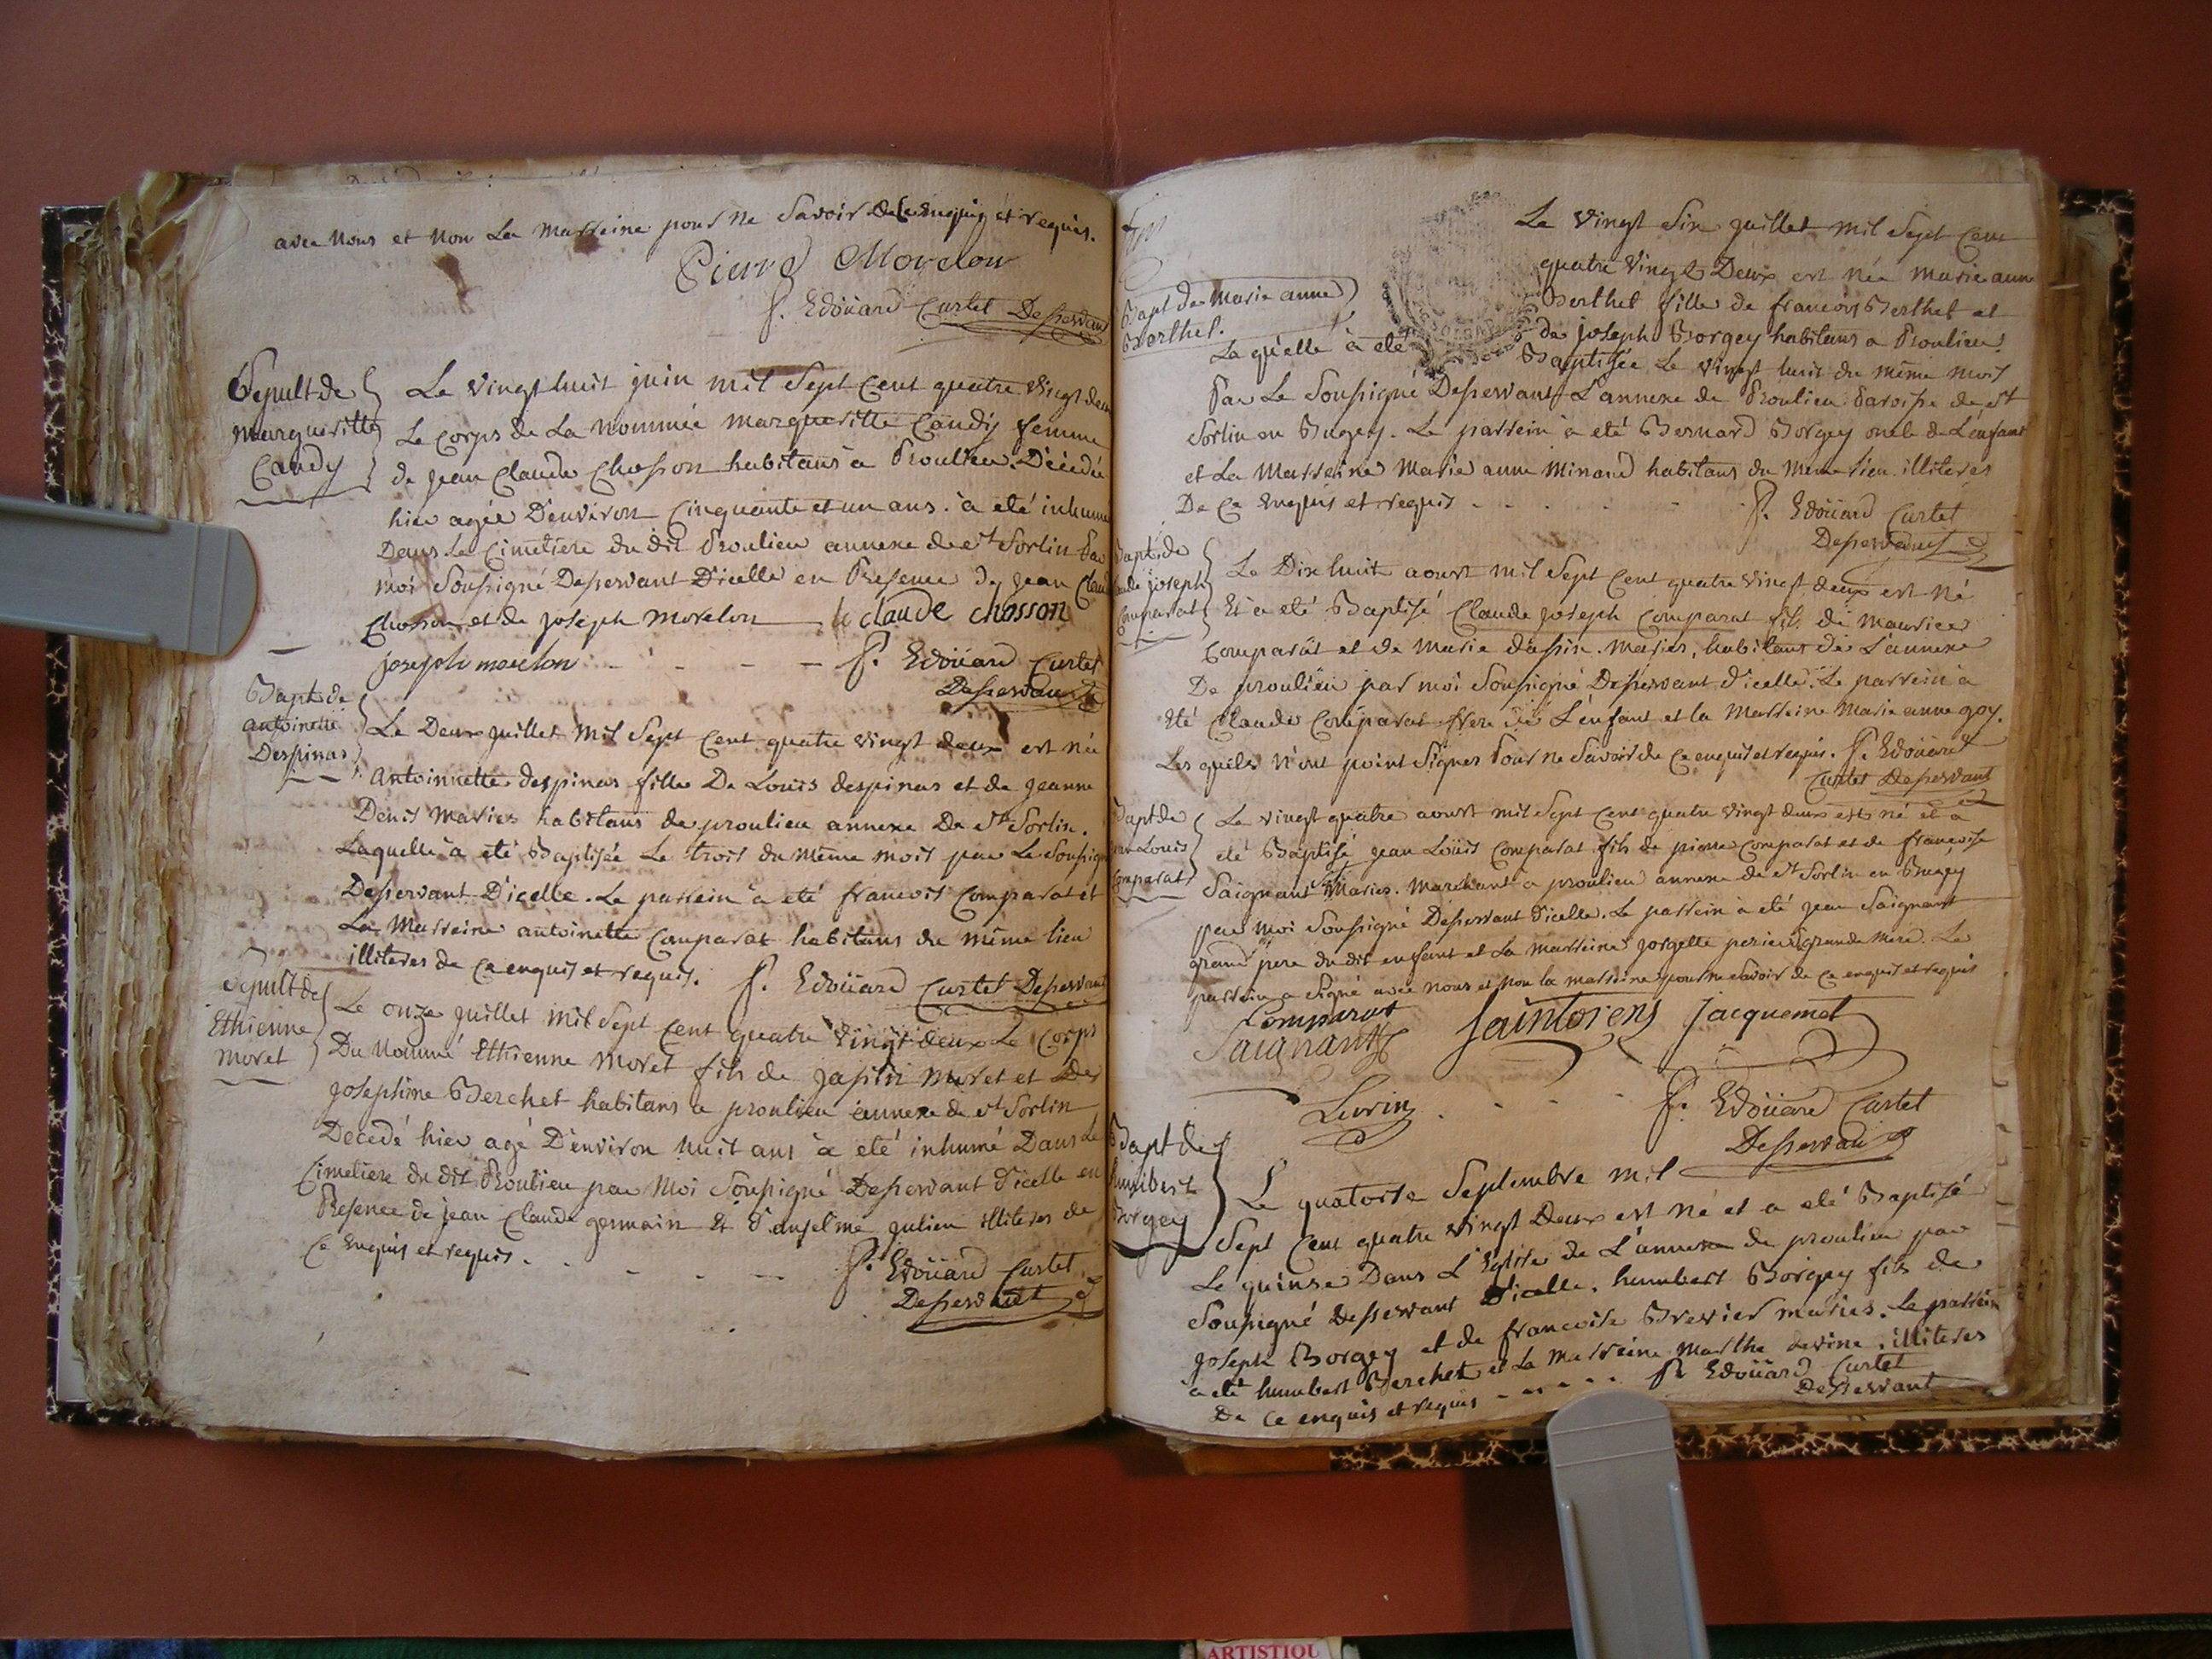 avec nous et non La Marreine pour ne Savoir de Ce enquis et requis.
Pierre Morelon
f. Edoüard Curtet Desservant
Sepult de
Margueritte
Candy
Le Vingt huit juin mil Sept Cent quatre Vingt deux
Le Corps de La nommée margueritte Candy femme
de jean Claude Chosson habitans a Proulieu. Décédée
hier agée D'environ Cinquante et un ans. à eté inhumé
Dans Le Cimetiere du dit Proulieu annexe de St Sorlin Par
moi Soussigné Desservant D'icelle en Presence de jean Claude
Chosson et de joseph Morelon claude chosson
joseph morelon f. Edoüard Curtet
Desservant
Bapt de
antoinette
Despinas
Le Deux juillet Mil Sept Cent quatre vingt deux est née
Antoinnette despinas fille De Louis despinas et de jeanne
Denis Mariés habitans de proulieu annexe De St Sorlin.
Laquelle à eté Baptisée Le trois du Même mois par Le Soussigné
Desservant D'icelle. Le parrein à eté francois Comparat et
La Marreine antoinette Comparat habitans du même lieu
illiteres de Ce enquis et requis. f. Edoüard Curtet Desservant
Sepult de
Ethienne
Moret
Le onze juillet mil Sept Cent quatre Vingt deux Le Corps
Du Nommé Ethienne Moret fils de Moret et De
josephine Berchet habitans a proulieu annexe de St Sorlin
Decedé hier agé D'environ huit ans à eté inhumé Dans Le
Cimetiere du dit Proulieu par Moi Soussigné Desservant D'icelle en
Presence de jean Claude germain Et D'anselme julien illiteres de
Ce enquis et requis. f. Edoüard Curtet
Desservant
Le vingt Six juillet mil Sept Cent
quatre Vingt Deux est née Marie anne
Bapt de Marie anne
Berthet.
Berthet fille de francois Berthet et
de joseph Borgey habitans a Proulieu.
La quelle à eté Baptisée Le Vingt huit du même mois
Par Le Soussigné Desservant L'annexe de Proulieu Paroisse de St
Sorlin en Bugey. Le parrein à eté Bernard Borgey oncle de L'enfant
et La Marreine Marie anne Minard habitans du Même Lieu illiteres
De Ce enquis et requis f. Edoüard Curtet
Desservant
Bapt de
Claude joseph
Comparat
Le Dix huit aoust mil Sept Cent quatre Vingt deux est né
Et à eté Baptisé Claude joseph Comparat fils de Maurice
Comparat et de Marie dassin. Mariés, habitans de L'annexe
De proulieu par moi Soussigné Desservant d'icelle. Le parrein à
Eté Claude Comparat frere de L'enfant et la Marreine Marie anne goy.
Les quels n'ont point Signés Pour ne Savoir de Ce enquis et requis. f. Edoüard
Curtet Desservant
Bapt de
jean Louis
Comparat
Le vingt quatre aoust mil Sept Cent quatre vingt deux est né et a
eté Baptisé jean Loüis Comparat fils de pierre Comparat et de francoise
Saignant Mariés. Marchant a proulieu annexe de St Sorlin en Bugey
par moi Soussigné Desservant d'icelle. Le parrein à eté jean Saignant
grand pere du dit enfant et La marreine perier grande Mere. Le
parrein a Signé avec nous et non la marreine pour ne Savoir de Ce enquis et requis
Comparat
Saignant Saintorens Jacquemet
Livrin f. Edoüard Curtet
Desservant
Bapt de
humbert
Borgey
Le quatorse Septembre mil
Sept Cent quatre Vingt Deux est né et a eté Baptisé
Le quinse Dans L'Eglise de L'annexe de proulieu par
Soussigné Desservant D'icelle. humbert Borgey fils de
joseph Borgey et de francoise Brevier mariés. Le parrein
à eté humbert Berchet et La Marreine Marthe devine. illiteres
De Ce enquis et requis f. Edoüard Curtet
Desservant
ARTISTIQU